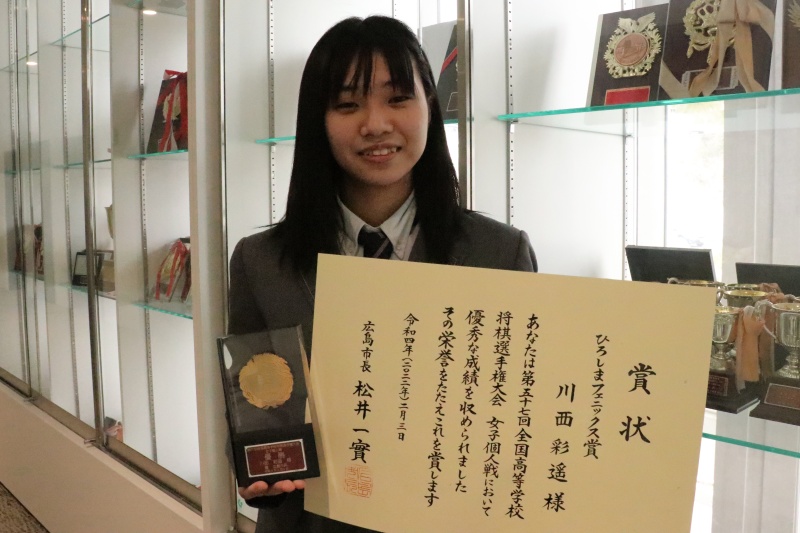 賞状
ひろしまフェニックス賞
川西彩遥様
あなたは第五十七回全国高等学校
将棋選手権大会 女子個人戦において
優秀な成績を収められました
その栄誉をたたえこれを賞します
令和四年(二〇二二年)二月三日
広島市長 松井一實